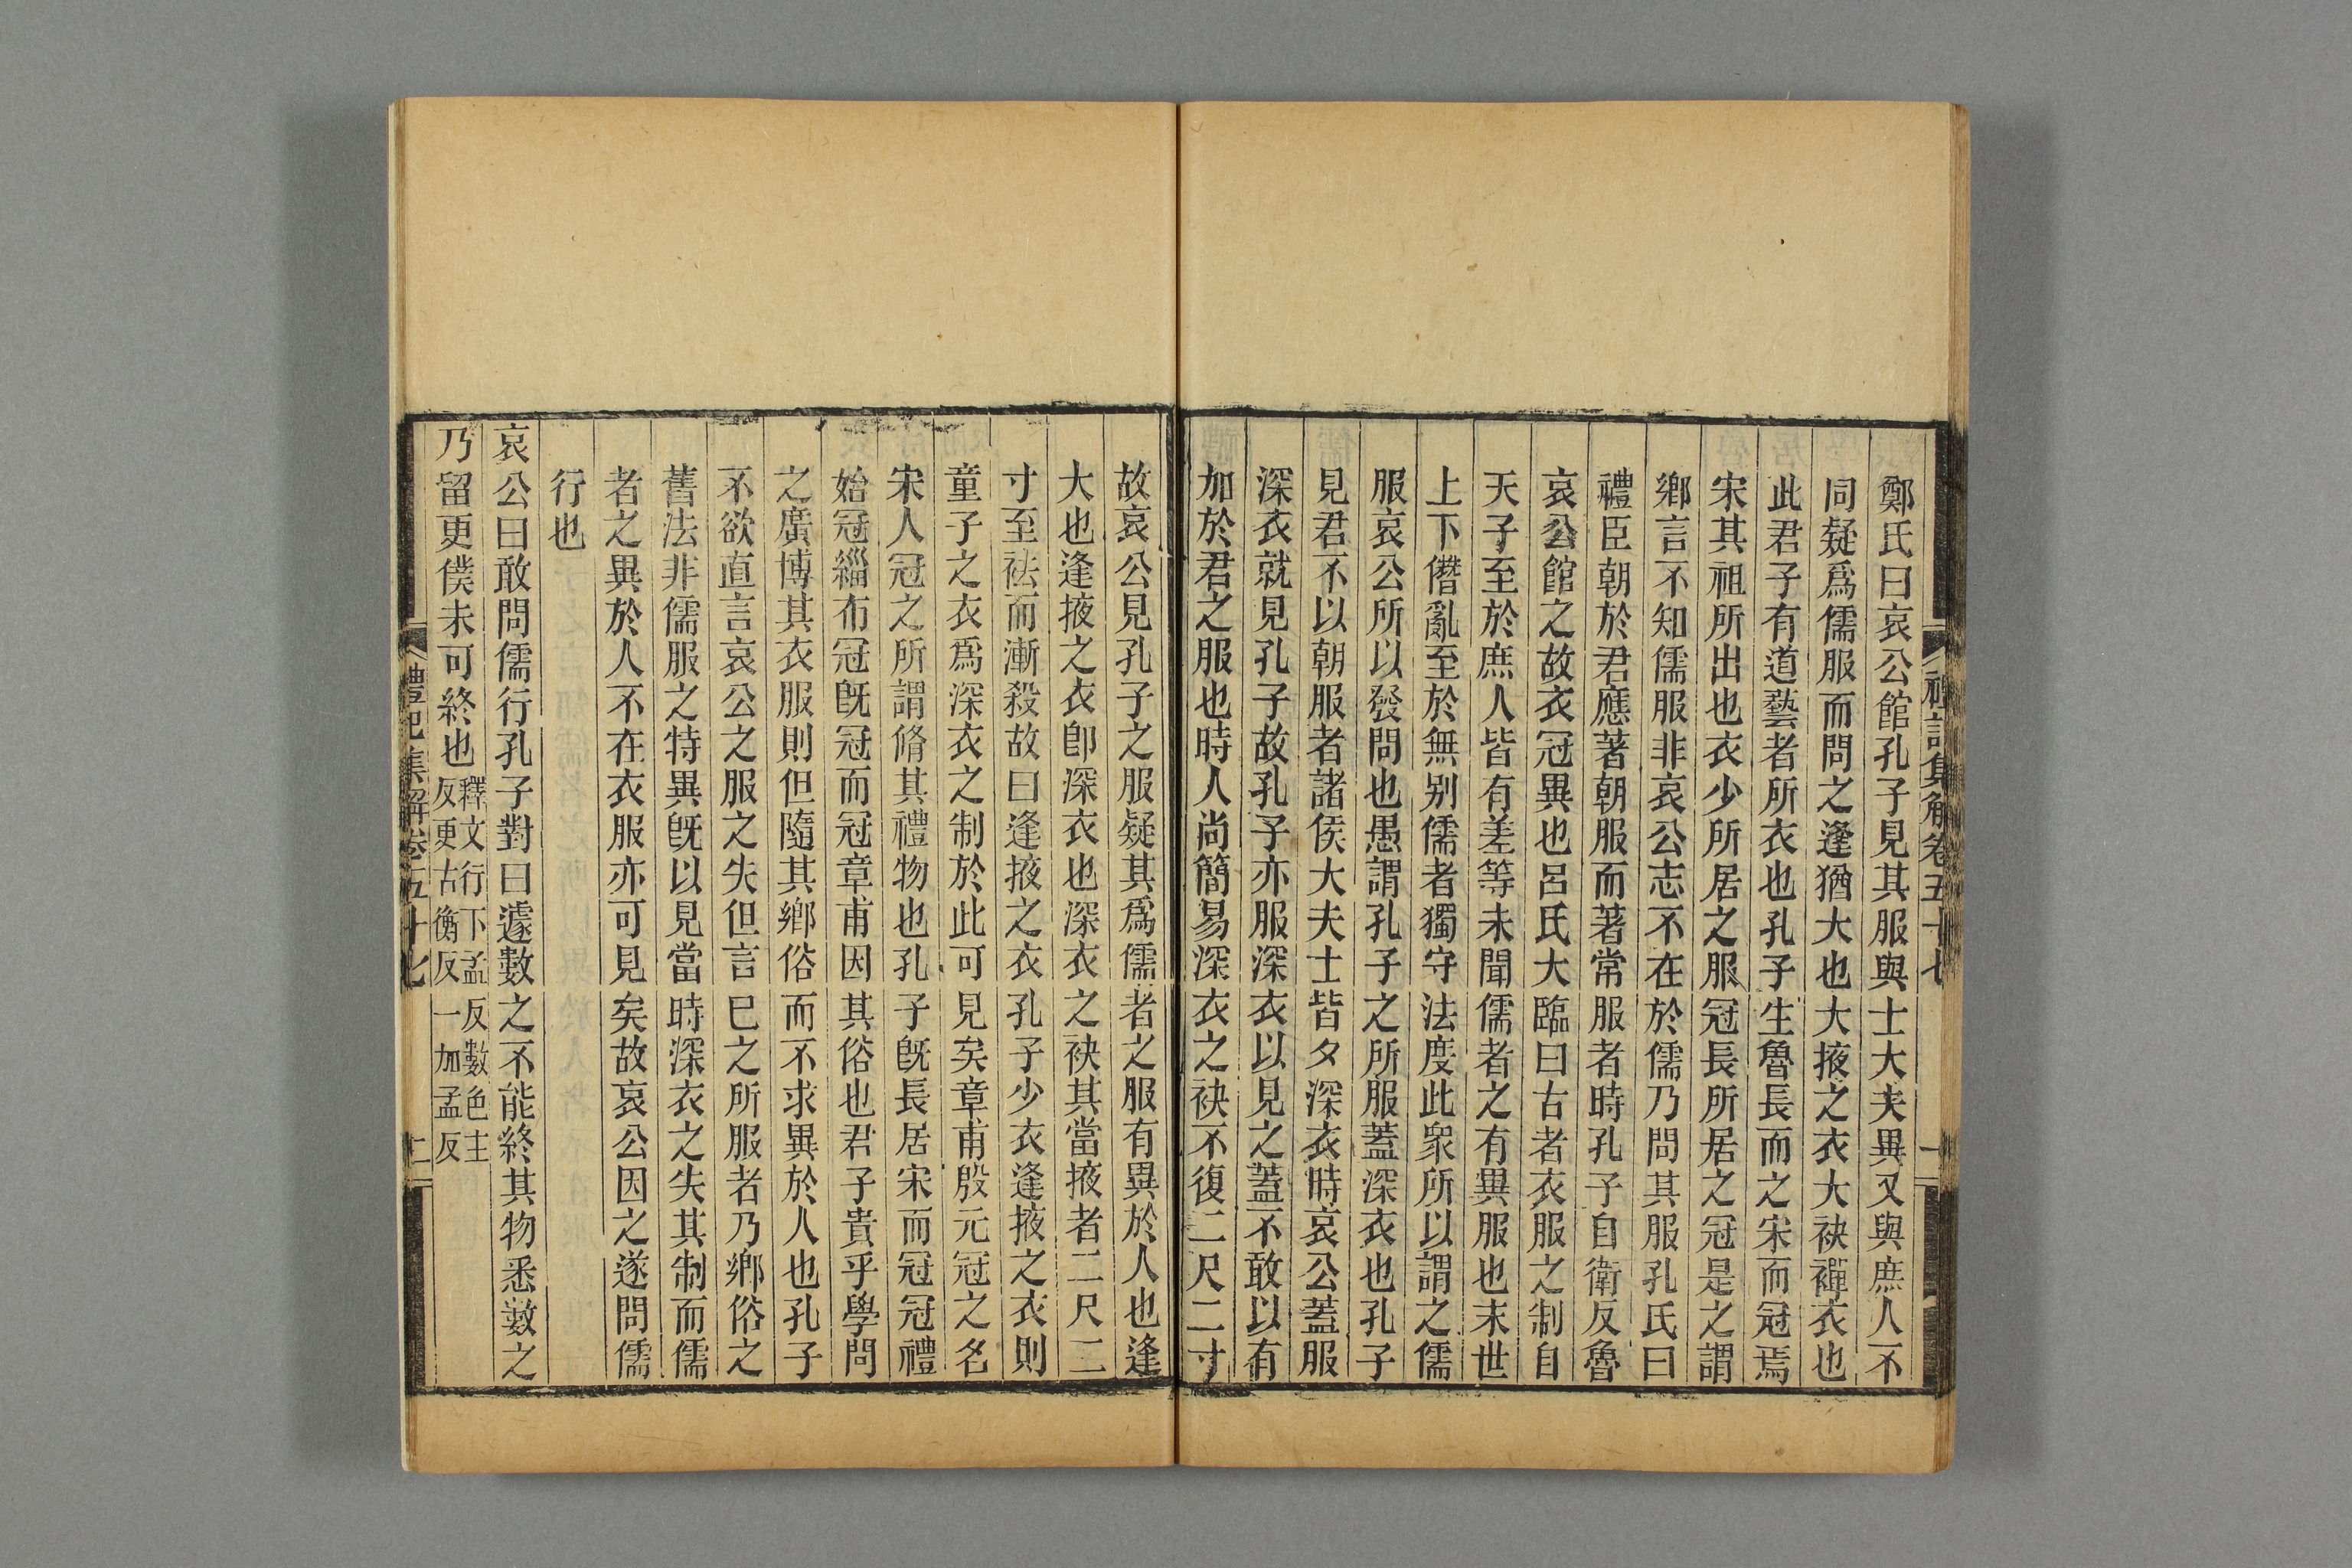 禮記集解卷五十七
一
鄭氏曰哀公館孔子見其服與士大夫異又與庶人不
同疑爲儒服而問之逢猶大也大掖之衣大袂襌衣也
此君子有道藝者所衣也孔子生魯長而之宋而冠焉
宋其祖所出也衣少所居之服冠長所居之冠是之謂
鄉言不知儒服非哀公志不在於儒乃問其服孔氏曰
禮臣朝於君應著朝服而著常服者時孔子自衛反魯
哀公館之故衣冠異也呂氏大臨曰古者衣服之制自
天子至於庶人皆有差等未聞儒者之有異服也末世
上下僭亂至於無別儒者獨守法度此衆所以謂之儒
服哀公所以發問也愚謂孔子之所服蓋深衣也孔子
見君不以朝服者諸侯大夫士皆夕深衣時哀公蓋服
深衣就見孔子故孔子亦服深衣以見之蓋不敢以有
加於君之服也時人尚簡易深衣之袂不復二尺二寸
故哀公見孔子之服疑其爲儒者之服有異於人也逢
大也逢掖之衣卽深衣也深衣之袂其當掖者二尺二
寸至袪而漸殺故曰逢掖之衣孔子少衣逢掖之衣則
童子之衣爲深衣之制於此可見矣章甫殷元冠之名
宋人冠之所謂脩其禮物也孔子旣長居宋而冠冠禮
始冠緇布冠旣冠而冠章甫因其俗也君子貴乎學問
之廣博其衣服則但隨其鄉俗而不求異於人也孔子
不欲直言哀公之服之失但言巳之所服者乃鄉俗之
舊法非儒服之特異旣以見當時深衣之失其制而儒
者之異於人不在衣服亦可見矣故哀公因之遂問儒
行也
哀公曰敢問儒行孔子對曰遽數之不能終其物悉數之
乃留更僕未可終也釋文行下孟反數色主
反更古衡反一加孟反
禮記集解卷五十七
二